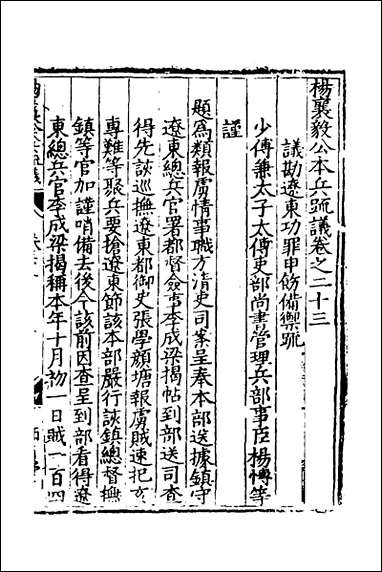 楊襄毅公本兵疏議卷之二十三
議勘遼東功罪申飭備禦疏
少傅兼太子太傅吏部尚書管理兵部事臣楊博等
謹
題為類報虜情事職方清吏司案呈奉本部送據鎮守
遼東總兵官署都督僉事李成梁揭帖到部送司查
得先該巡撫遼東都御史張學顏塘報虜賊速把亥
專難等聚兵要搶遼東節該本部嚴行該鎮總督撫
鎮等官加謹哨備去後今該前因查呈到部看得遼
東總兵官李成梁揭稱本年十月初一日賊一百四